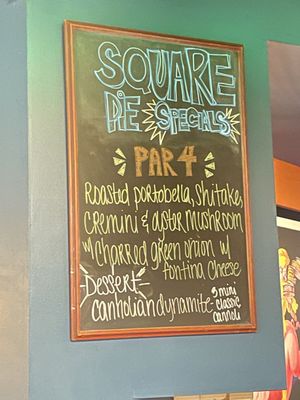 SQUARE
PIE SPECIALS
PAR 4
Roasted portobella, Shitake,
CREMINI & oyster mushroom
w/ Charred green onion w/
fontina, Cheese
Dessert-
Canholi an dynamite- 3 mini
classic
cannoli